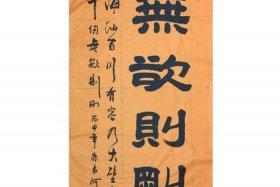 無欲則剛
海納百川有容乃大壁
千仞無欲則剛丙申年